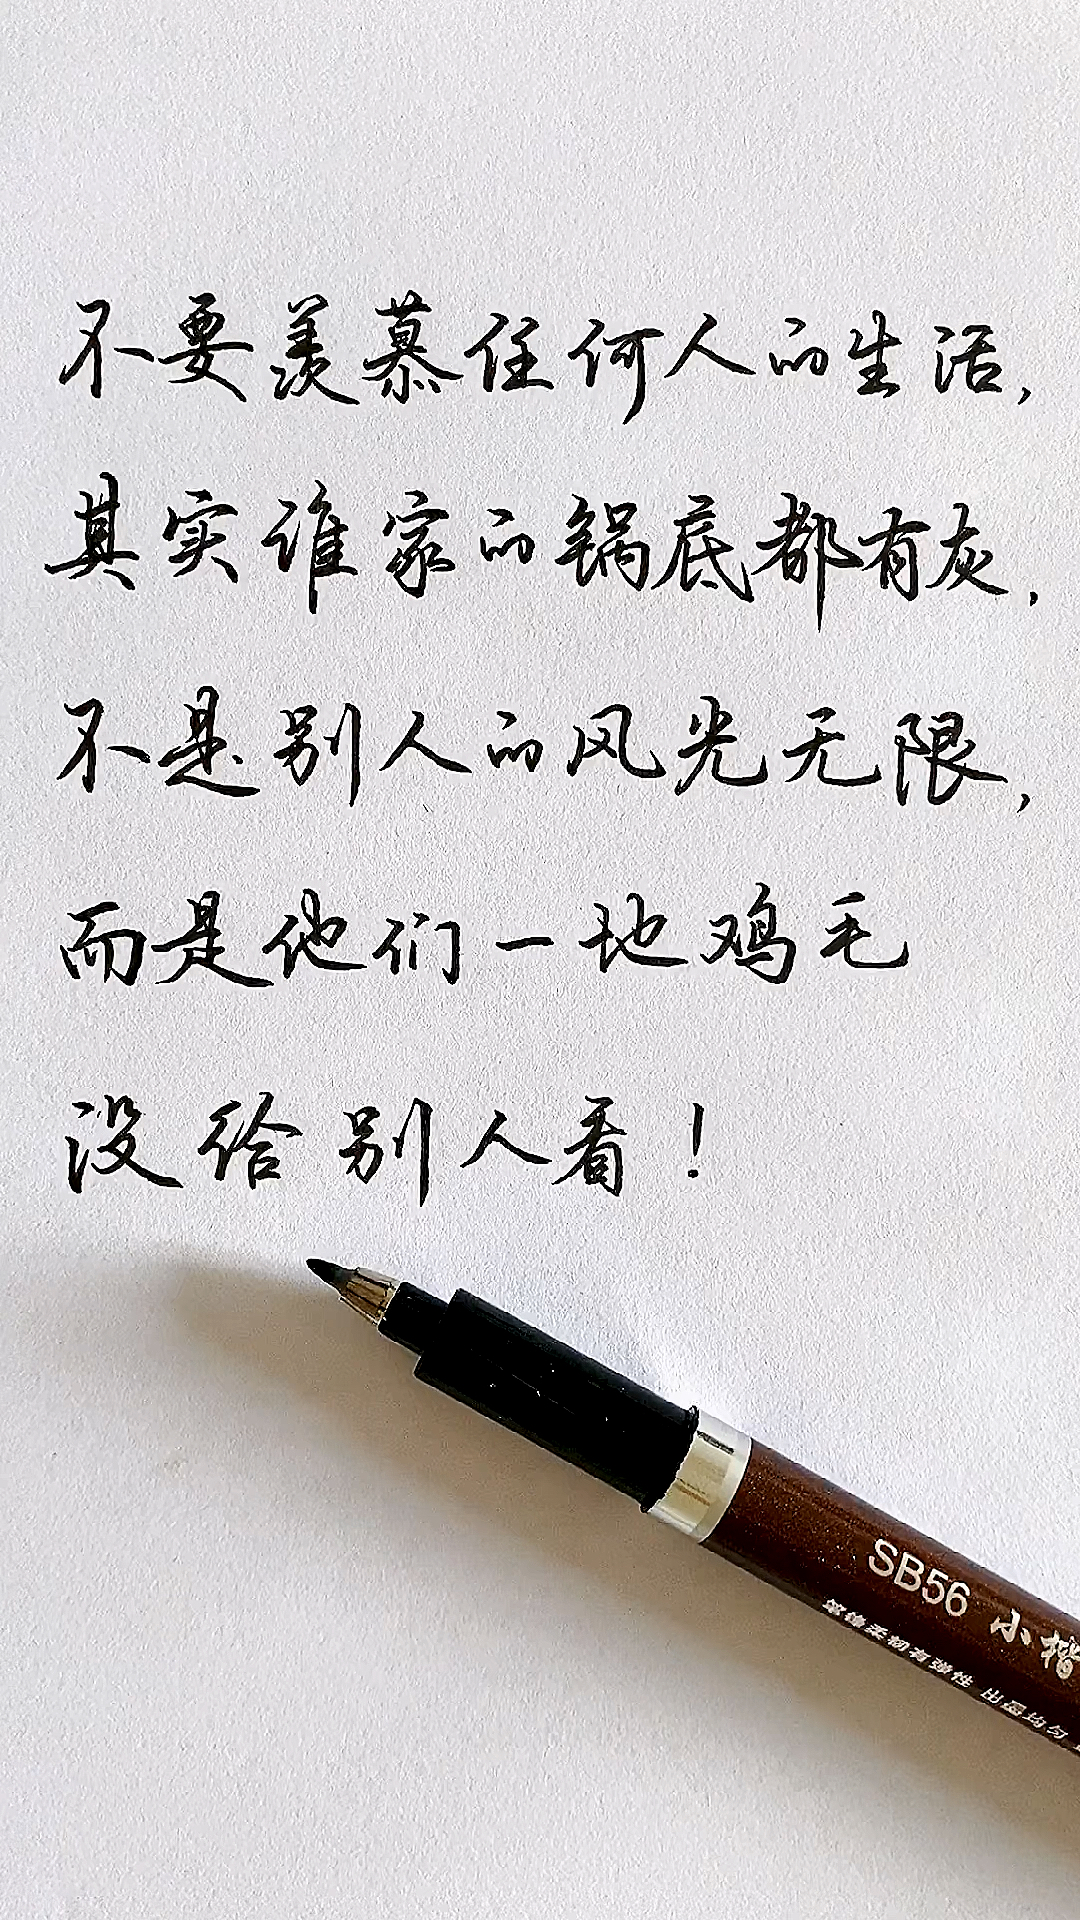 不要羡慕任何人的生活,
其实谁家的锅底都有灰,
不是别人的风光无限,
而是他们一地鸡毛
没给别人看!
SB56 小楷
笔锋柔韧有弹性 出墨均匀